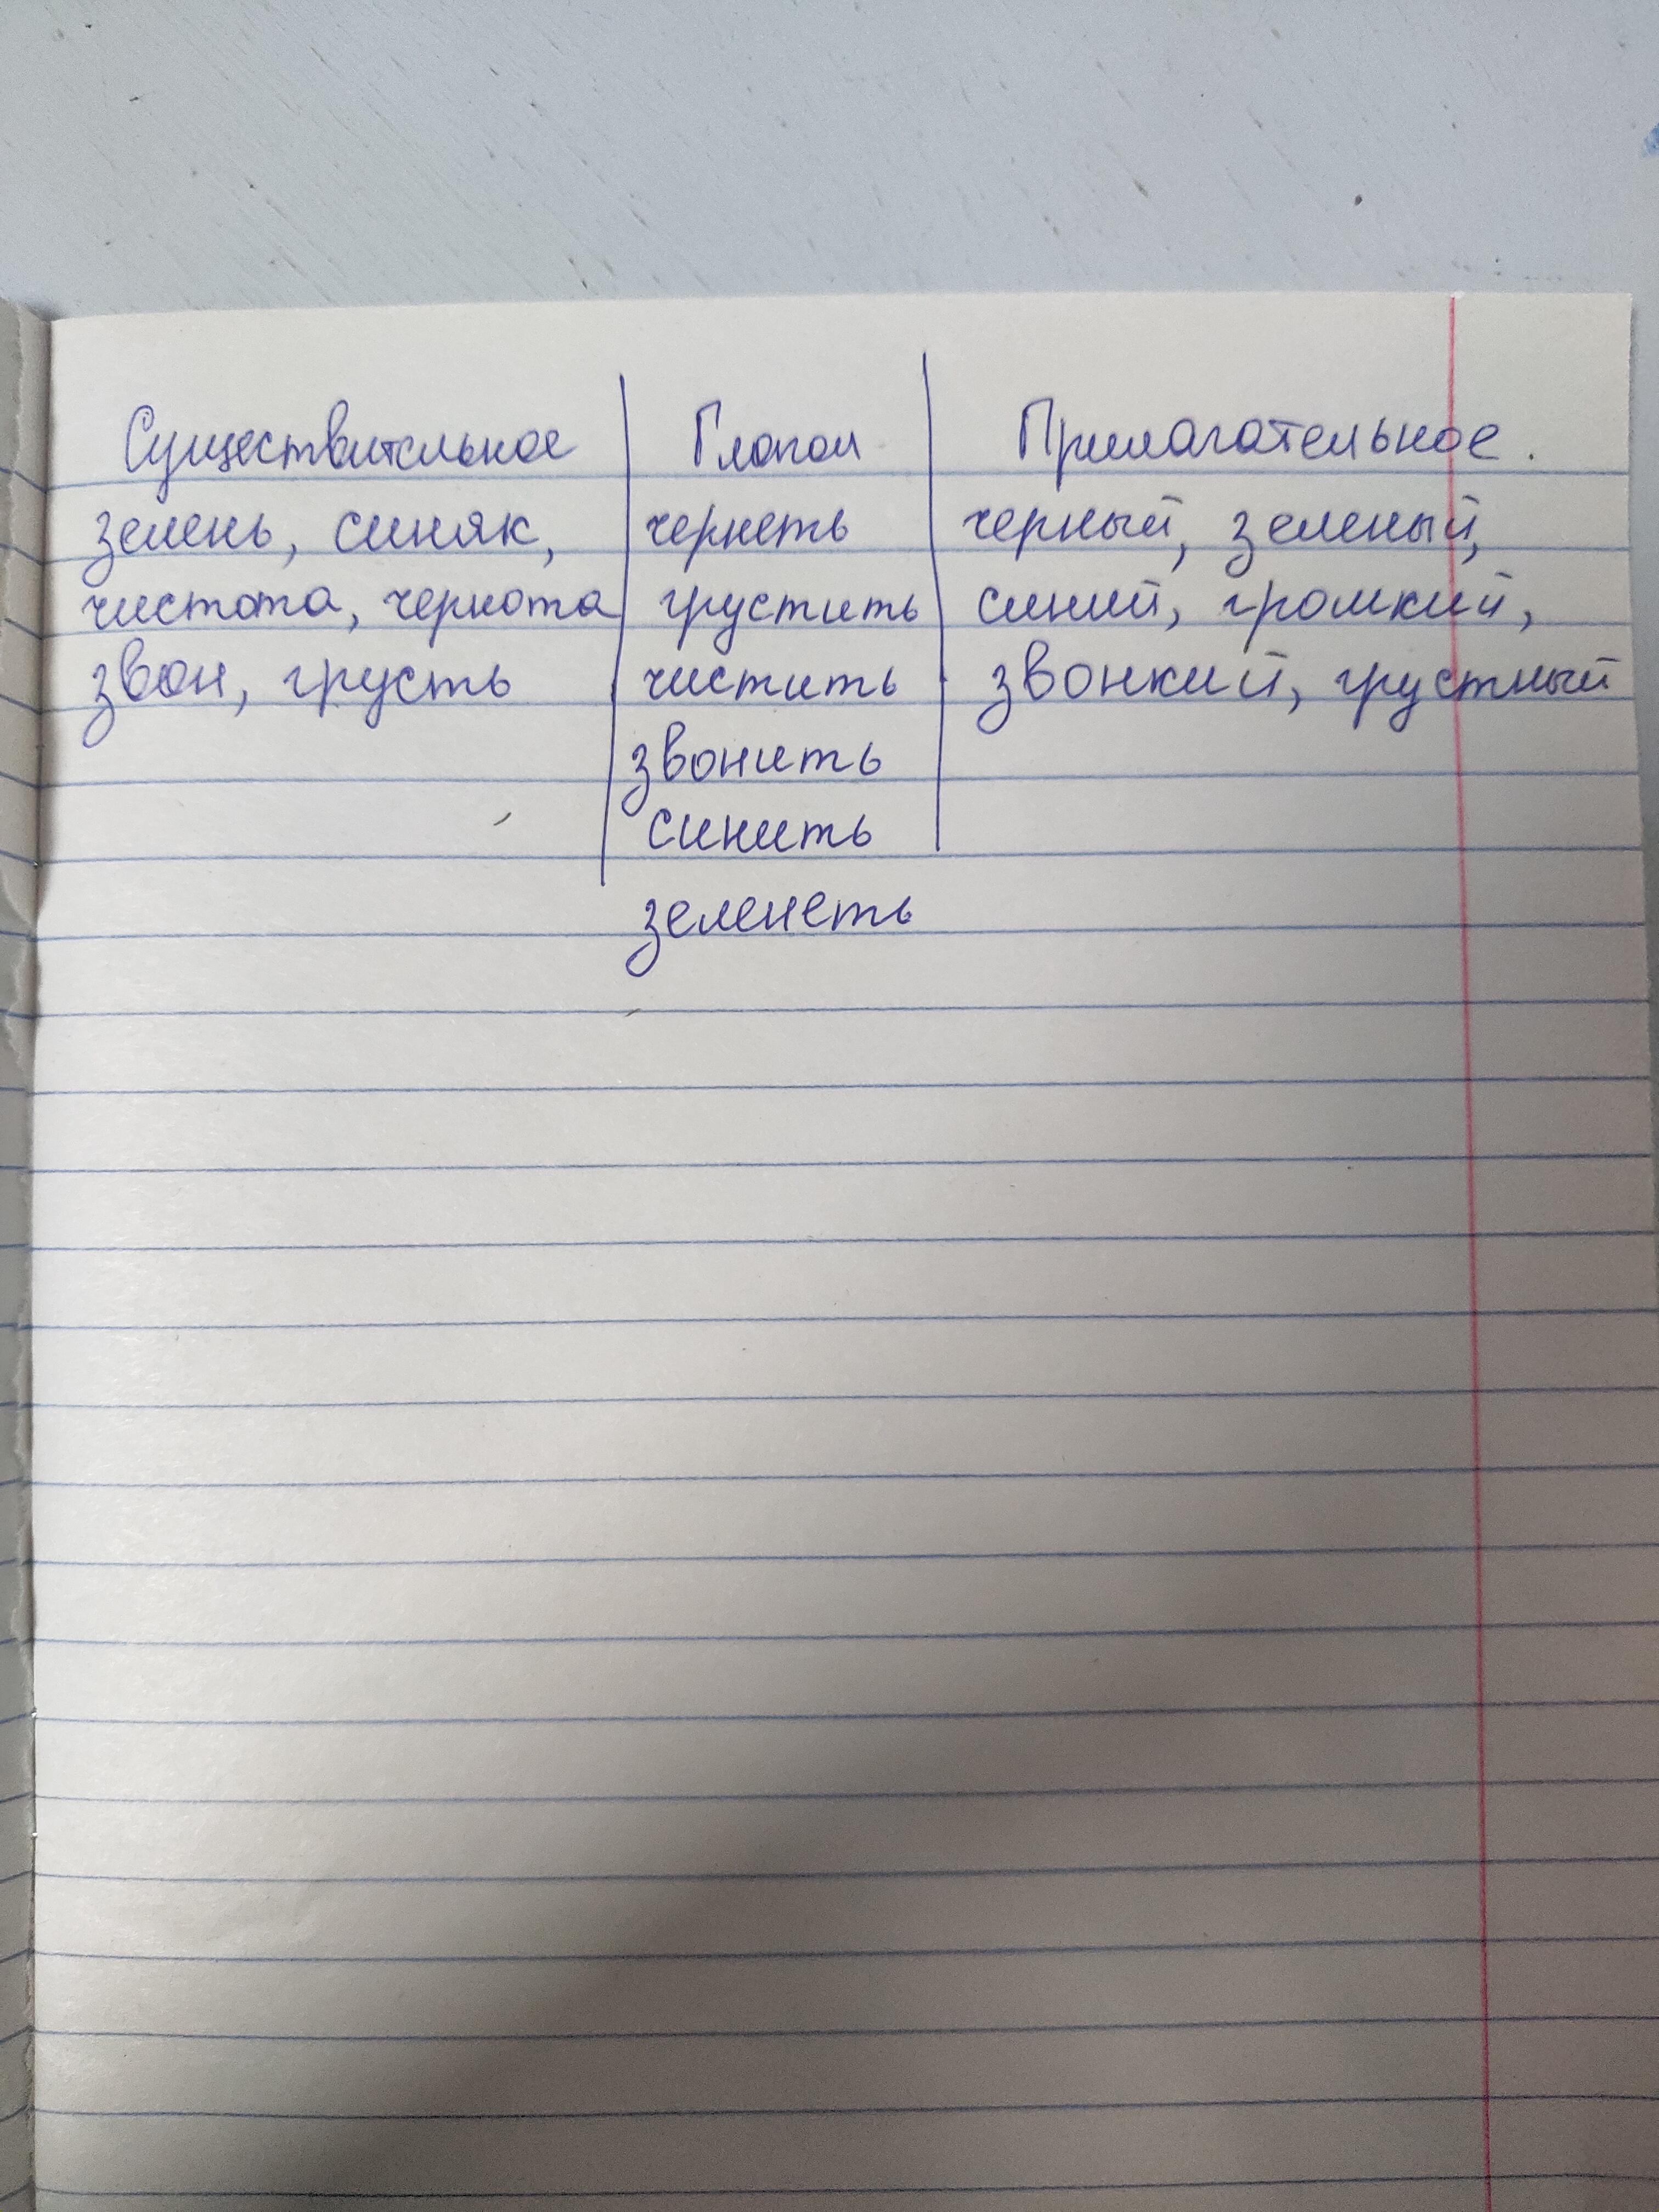 Существительное Глагол Прилагательное.
зелень, синяк, чернеть черный, зеленый,
чистота, чернота грустить синий, громкий,
звон, грусть чистить звонкий, грустный
звонить
синить
зеленеть